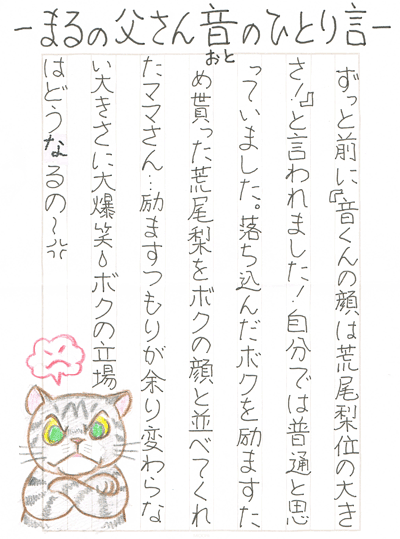 -まるの父さん音のひとり言-
おと
ずっと前に『音くんの顔は荒尾梨位の大き
さ!』と言われました!自分では普通と思
っていました。落ち込んだボクを励ますた
め貰った荒尾梨をボクの顔と並べてくれ
たママさん…励ますつもりが余り変わらな
い大きさに大爆笑💧ボクの立場
はどうなるの〜💢